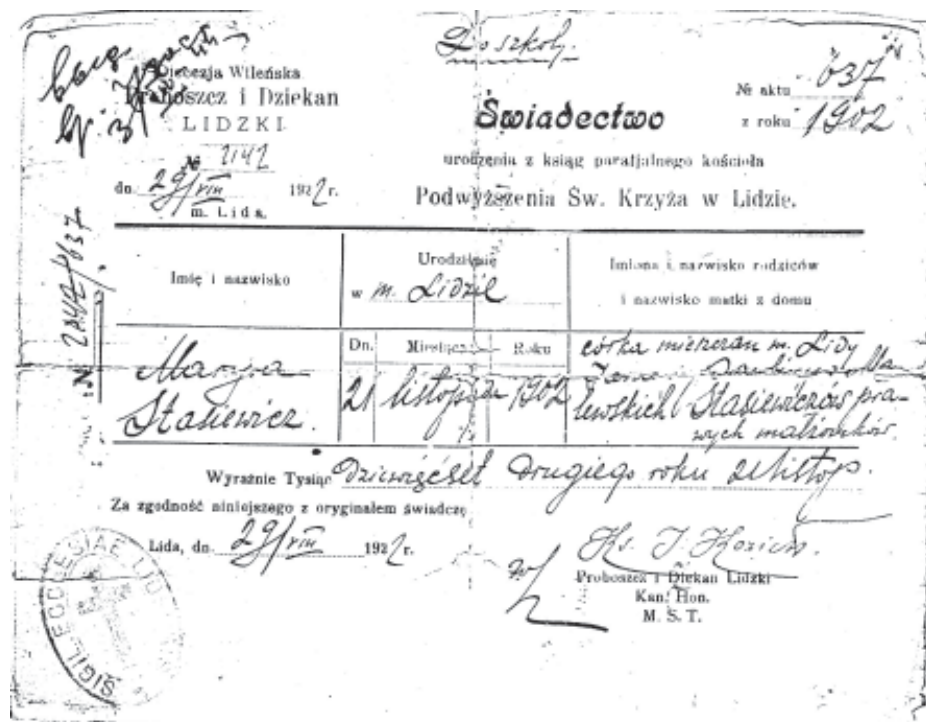 Do szkoły.
Diecezja Wileńska
Proboszcz i Dziekan
LIDZKI
№ 2142
dn. 29/VIII 1922 r.
m. Lida.
№ aktu 637
z roku 1902
Świadectwo
urodzenia z ksiąg parafjalnego kościoła
Podwyższenia Św. Krzyża w Lidzie.
№ 2142/637
Imię i nazwisko
Urodzenie
w m. Lidzie
Imiona i nazwisko rodziców
i nazwisko matki z domu
Dn. Miesiąc Roku
Marya
Stasiewicz.
21 listopada 1902
córka mieszczan m. Lidy
lewskich Stasiewiczów pra-
wych małżonków.
Wyraźnie Tysiąc Dziewięćset Drugiego roku 21 listop.
Za zgodność niniejszego z oryginałem świadczę
Lida, dn. 29/VIII 1922 r.
Ks.
Proboszcz i Dziekan Lidzki
Kan. Hon.
M. S. T.
SIGIL. ECCLESIAE LID